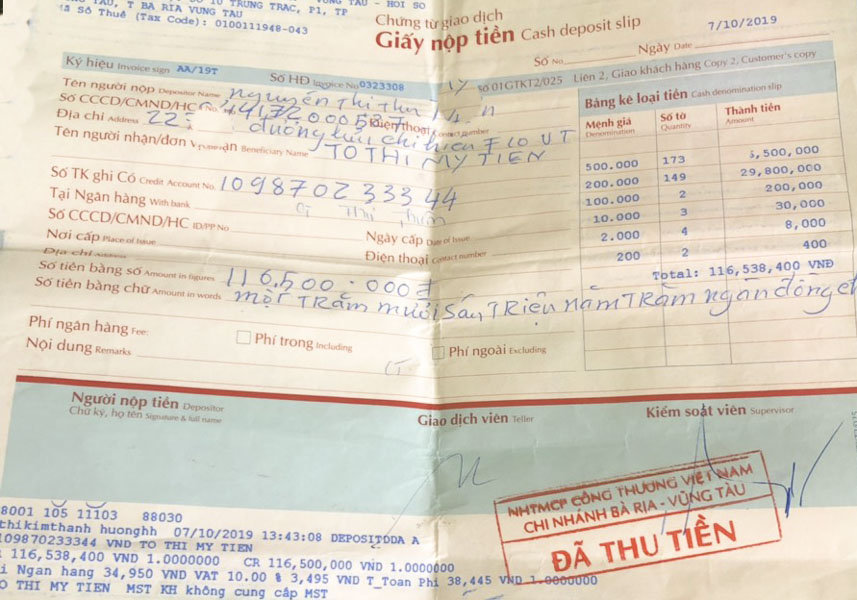 VŨNG TÀU - HOI SO
TAU, T BA RIA VUNG TAU 10 TRUNG TRAC, P1, TP
Số Thuế (Tax Code): 0100111948-043
Chứng từ giao dịch
Giấy nộp tiền Cash deposit slip
7/10/2019
Số No. Ngày Date
Ký hiệu Invoice sign AA/19T Số HĐ Invoice No 0323308 số 01GTKT2/025 Liên 2, Giao khách hàng Copy 2, Customer's copy
Tên người nộp Depositor Name Nguyễn Thị Thu
Số CCCD/CMND/HC
Địa chỉ Address Điện thoại Contact number
Tên người nhận/đơn vị Beneficiary Name TO THI MY TIEN
Số TK ghi Có Credit Account No. 109870233344
Tại Ngân hàng With bank
Số CCCD/CMND/HC ID/PP No Ngày cấp Date of Issue
Nơi cấp Place of Issue Điện thoại Contact number
Địa chỉ Address
Số tiền bằng số Amount in figures 116.500.000đ
Số tiền bằng chữ Amount in words một Trăm mười Sáu TRiệu năm TRăm ngàn đồng
Phí ngân hàng Fee: Phí trong Including Phí ngoài Excluding
Nội dung Remarks
Bảng kê loại tiền Cash denomination slip
Mệnh giá Số tờ Thành tiền
Denomination Quantity Amount
500.000 173 ,500,000
200.000 149 29,800,000
100.000 2 200,000
10.000 3 30,000
2.000 4 8,000
200 2 400
Total: 116,538,400 VNĐ
Người nộp tiền Depositor
Chữ ký, họ tên Signature & full name
Giao dịch viên Teller
Kiểm soát viên Supervisor
NHTMCP CÔNG THƯƠNG VIỆT NAM
CHI NHÁNH BÀ RỊA - VŨNG TÀU
ĐÃ THU TIỀN
8001 105 11103 88030
thikimthanh huonghh 07/10/2019 13:43:08 DEPOSITDDA A
109870233344 VND TO THI MY TIEN
116,538,400 VND 1.0000000 CR 116,500,000 VND 1.0000000
i Ngan hang 34,950 VND VAT 10.00 % 3,495 VND T_Toan Phi 38,445 VND 1.0000000
O THI MY TIEN MST KH không cung cấp MST